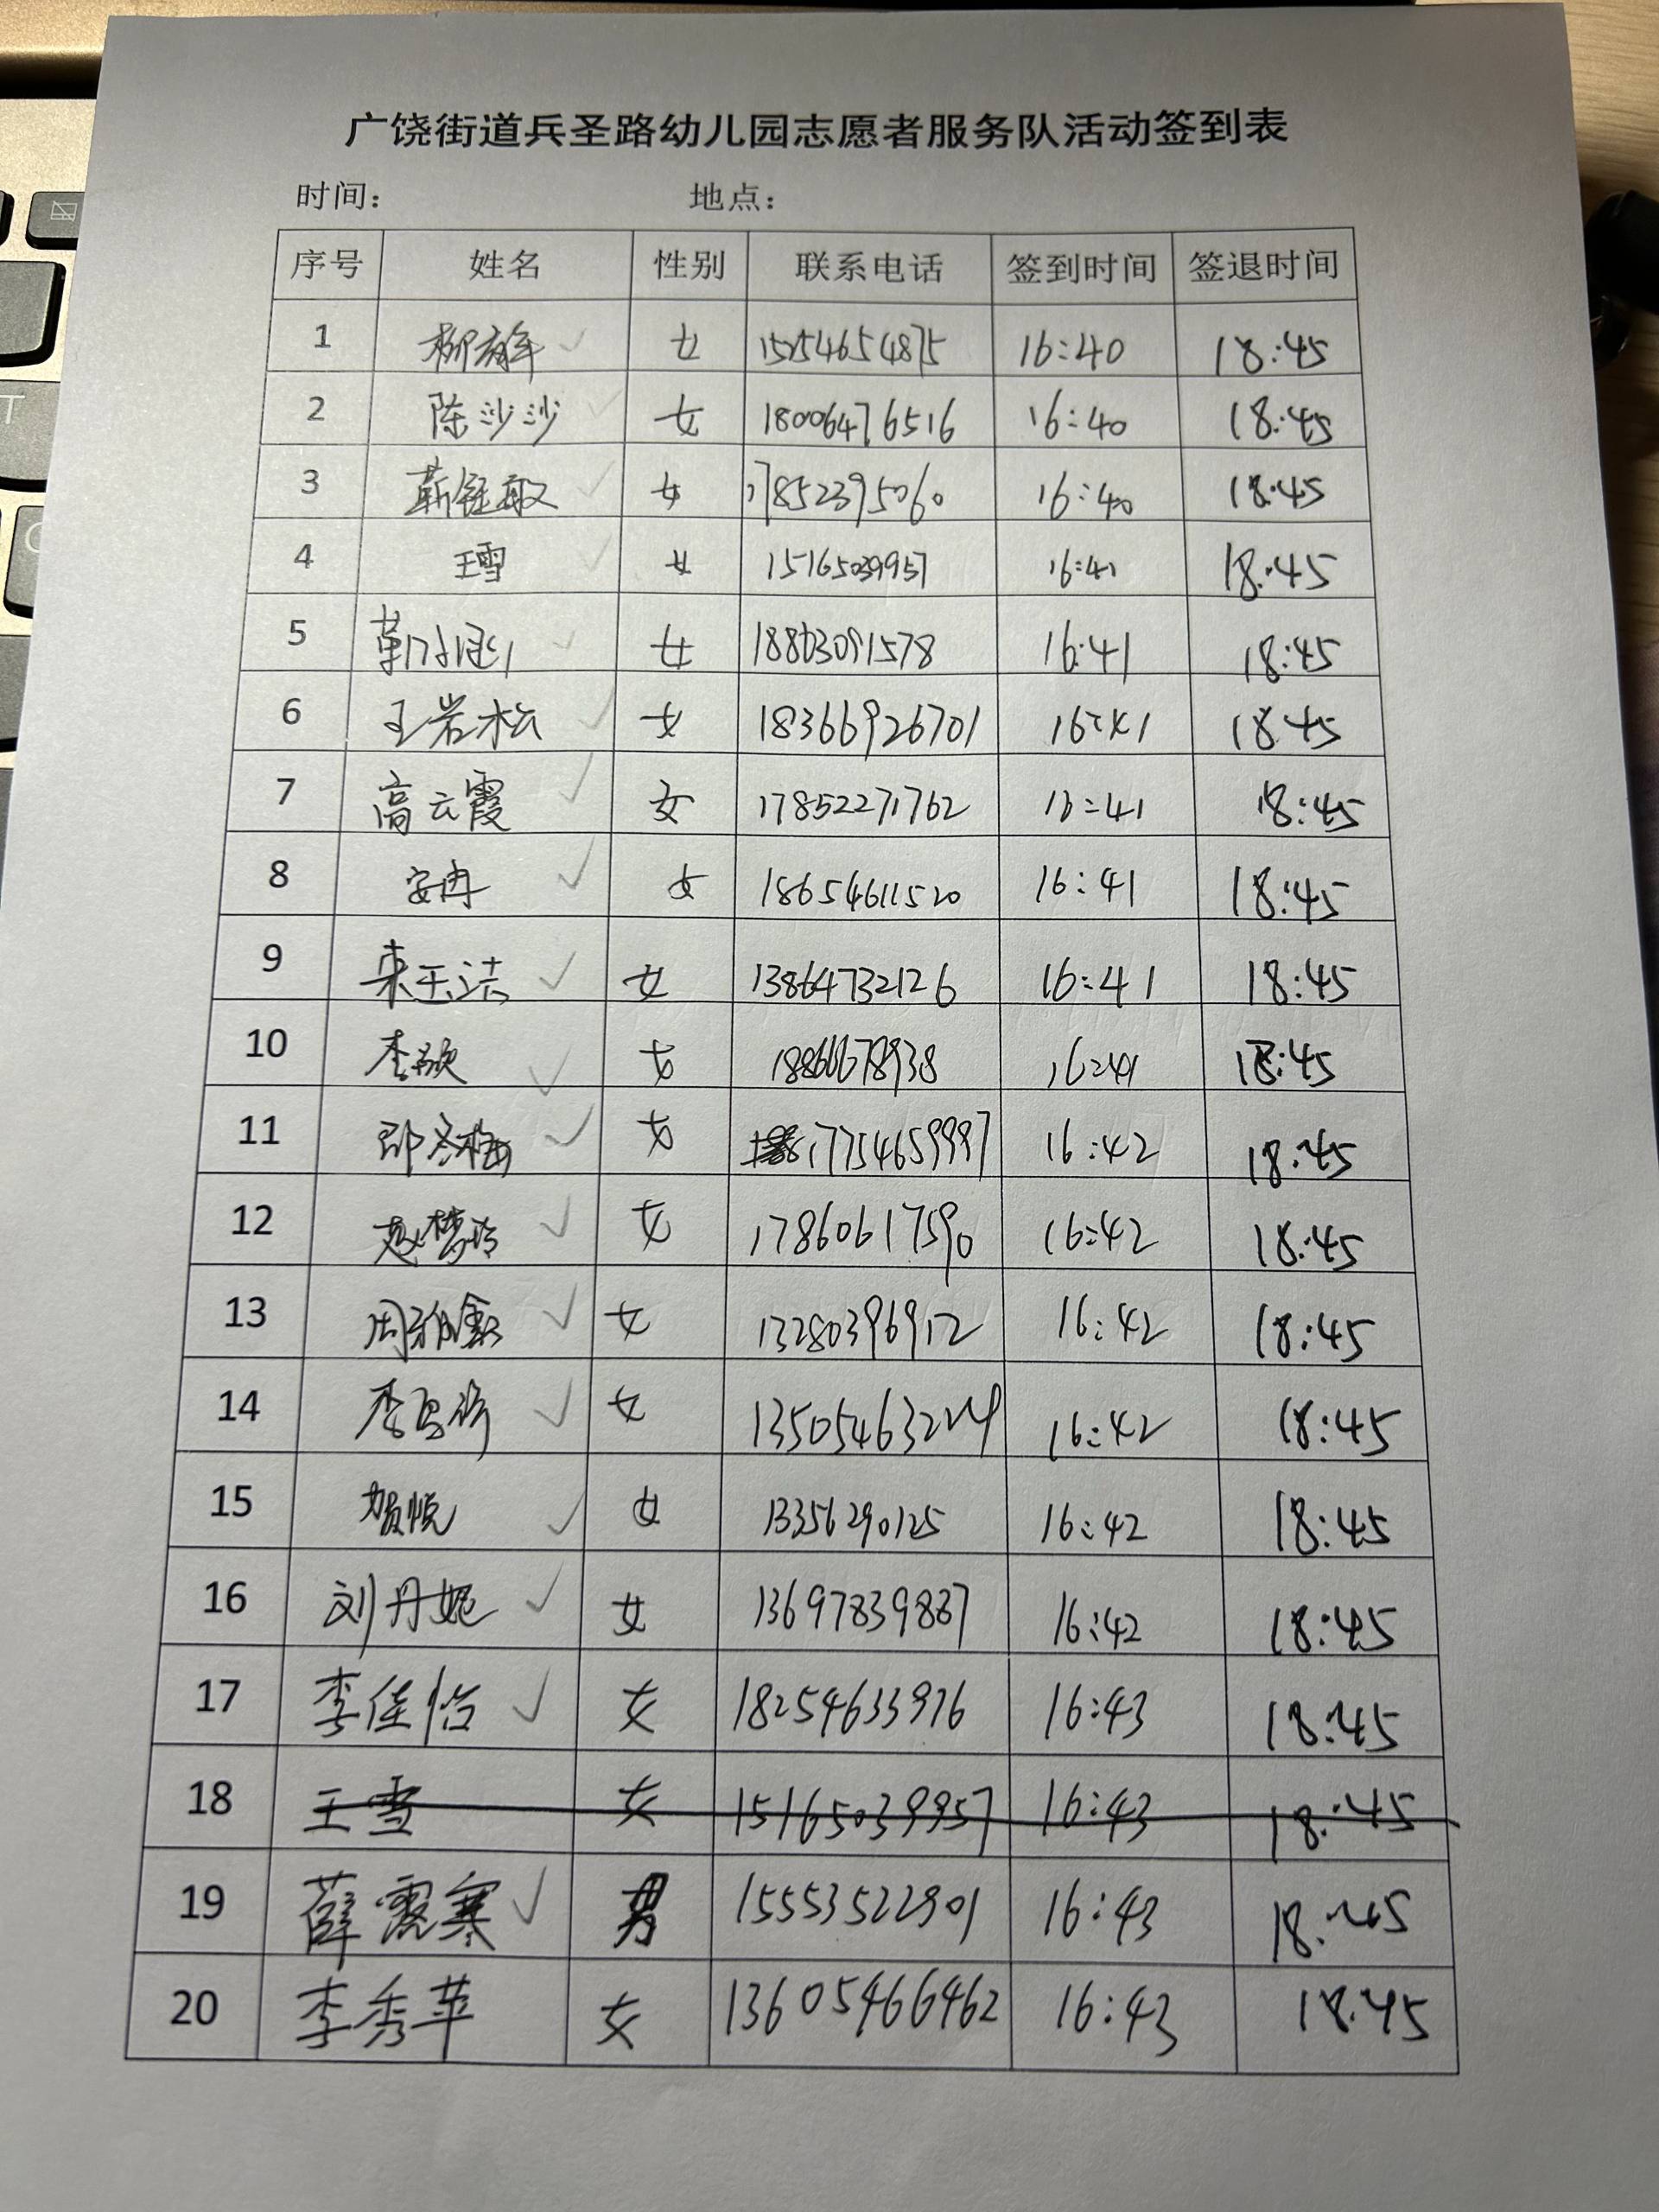 广饶街道兵圣路幼儿园志愿者服务队活动签到表
时间： 地点：
序号 姓名 性别 联系电话 签到时间 签退时间
1 女 15254654875 16:40 18:45
2 陈沙沙 女 18006476516 16:40 18:45
3 女 17852395060 16:40 18:45
4 王雪 女 15165039957 16:41 18:45
5 女 18803091578 16:41 18:45
6 王岩松 女 18366926701 16:41 18:45
7 高云霞 女 17852271762 16:41 18:45
8 安冉 女 18654611520 16:41 18:45
9 来玉洁 女 13864732126 16:41 18:45
10 女 16:41 18:45
11 女 17754659997 16:42 18:45
12 女 17860617590 16:42 18:45
13 周雅鑫 女 13280396912 16:42 18:45
14 女 16:42 18:45
15 贺悦 女 13356290125 16:42 18:45
16 刘丹妮 女 13697839887 16:42 18:45
17 李佳怡 女 18254633976 16:43 18:45
18 王雪 女 15165039957 16:43 18:45
19 薛露寒 男 15553522901 16:43 18:45
20 李秀苹 女 13605466462 16:43 18:45